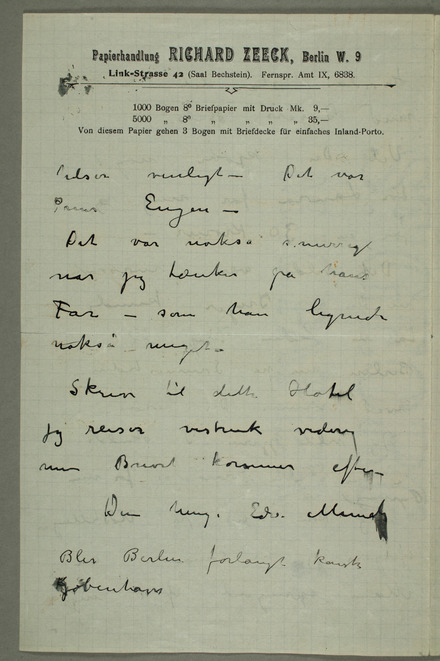 Papierhandlung RICHARD ZEECK, Berlin W. 9
Link-Strasse 42 (Saal Bechstein). Fernspr. Amt IX, 6838.
1000 Bogen 8º Briefpapier mit Druck Mk. 9,—
5000 „ 8º „ „ „ „ 35,—
Von diesem Papier gehen 3 Bogen mit Briefdecke für einfaches Inland-Porto.
venligt — Det var
Prins Eugen —
Det var nokså
når jeg tænker på
Far — som han lignede
nokså meget —
Skriv til dette Hotel
jeg reiser vistnok videre
men Brevet kommer efter
Din heng. Edv. Munch
Blir Berlin forlangt kanske
Kjøbenhavn